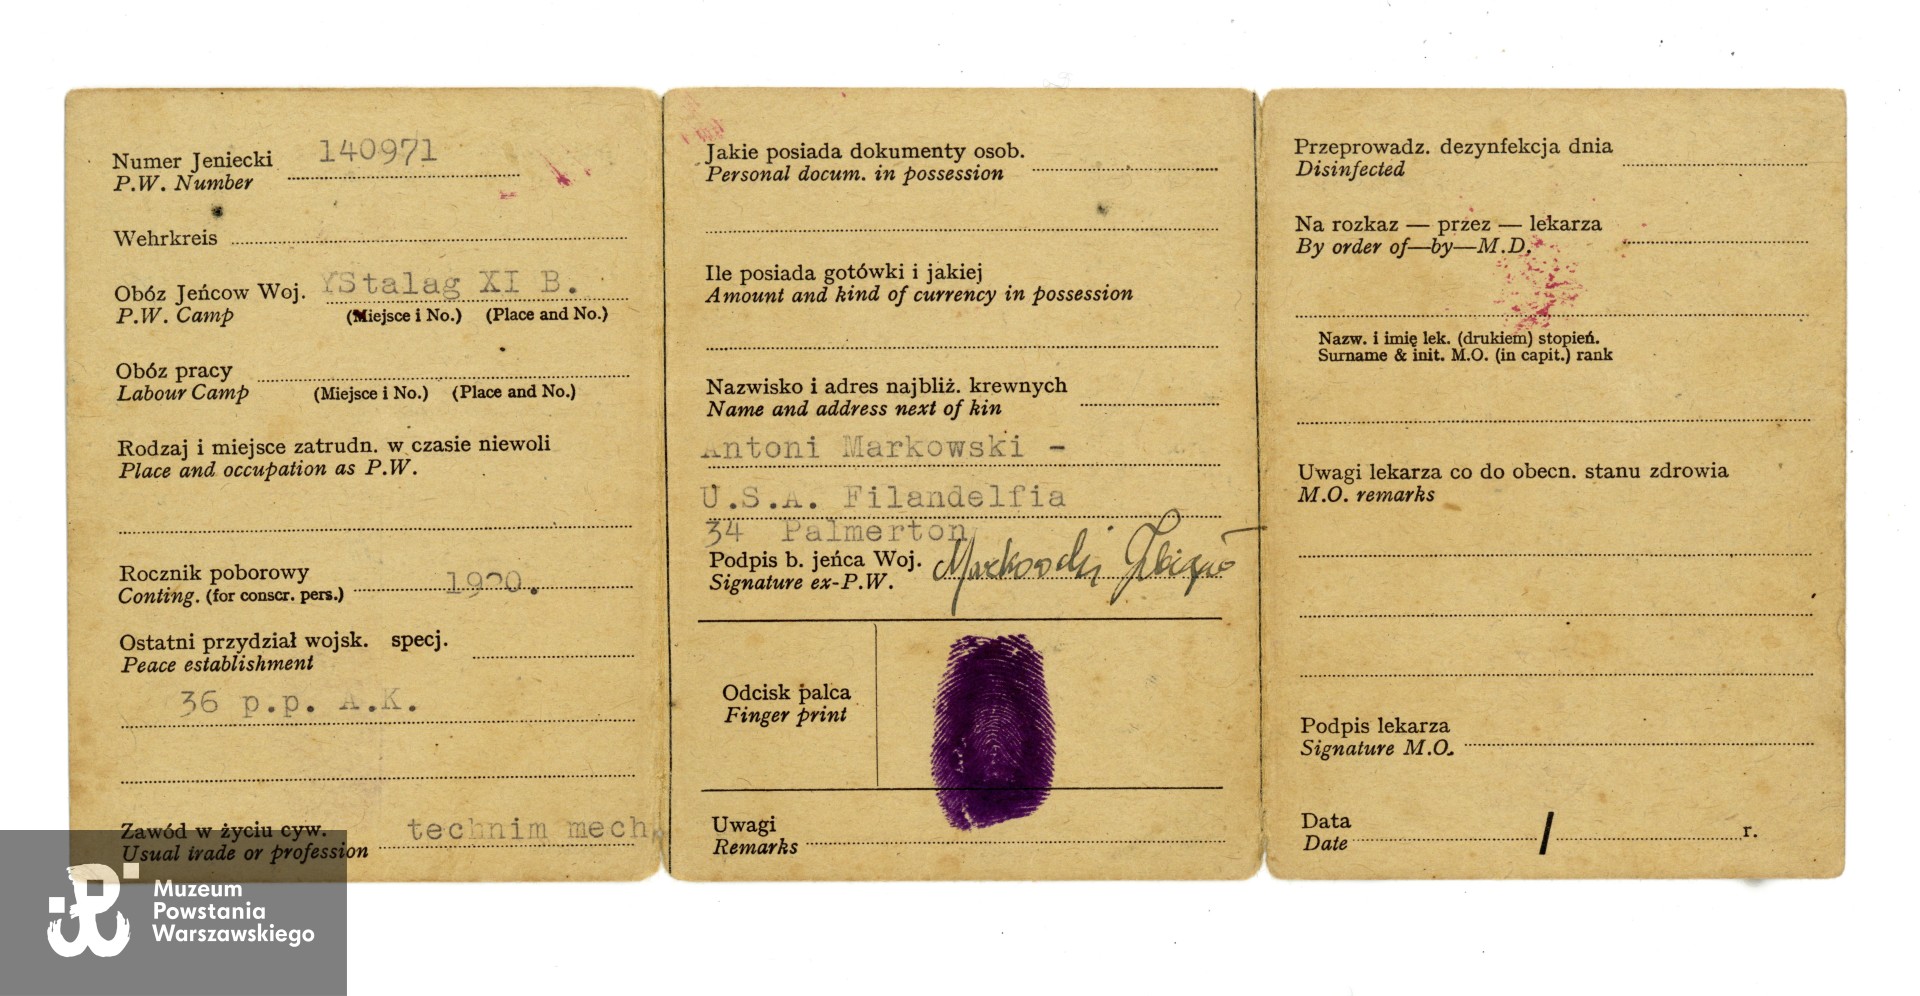 Numer Jeniecki 140971
P.W. Number
Wehrkreis
Obóz Jeńcow Woj. YStalag XI B.
P.W. Camp (Miejsce i No.) (Place and No.)
Obóz pracy
Labour Camp (Miejsce i No.) (Place and No.)
Rodzaj i miejsce zatrudn. w czasie niewoli
Place and occupation as P.W.
Rocznik poborowy 1920.
Conting. (for conscr. pers.)
Ostatni przydział wojsk. specj.
Peace establishment
36 p.p. A.K.
Zawód w życiu cyw. technim mech.
Usual trade or profession
Jakie posiada dokumenty osob.
Personal docum. in possession
Ile posiada gotówki i jakiej
Amount and kind of currency in possession
Nazwisko i adres najbliż. krewnych
Name and address next of kin
Antoni Markowski -
U.S.A. Filandelfia
34 Palmerton
Podpis b. jeńca Woj. Markowski
Signature ex-P.W.
Odcisk palca
Finger print
Uwagi
Remarks
Przeprowadz. dezynfekcja dnia
Disinfected
Na rozkaz — przez — lekarza
By order of—by—M.D.
Nazw. i imię lek. (drukiem) stopień.
Surname & init. M.O. (in capit.) rank
Uwagi lekarza co do obecn. stanu zdrowia
M.O. remarks
Podpis lekarza
Signature M.O.
Data / r.
Date
Muzeum
Powstania
Warszawskiego